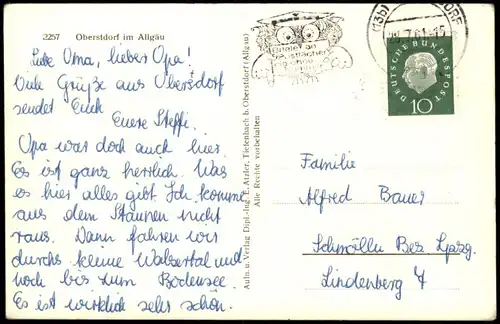 2257 Oberstdorf im Allgäu
Liebe Oma, lieber Opa!
Viele Grüße aus Oberstdorf
sendet Euch
Eure Steffi.
Opa war doch auch hier.
Es ist ganz herrlich. Was
es hier alles gibt. Ich komme
aus dem Staunen nicht
raus. Dann fahren wir
durchs kleine Walsertal und
noch bis zum Bodensee.
Es ist wirklich sehr schön.
Aufn. u. Verlag Dipl.-Ing. E. Atzler, Tiefenbach b. Oberstdorf (Allgäu)
Alle Rechte vorbehalten
(13b)
DEUTSCHE BUNDESPOST
10
Familie
Alfred Bauer
Schmölln Bez. Lpzg.
Lindenberg 7